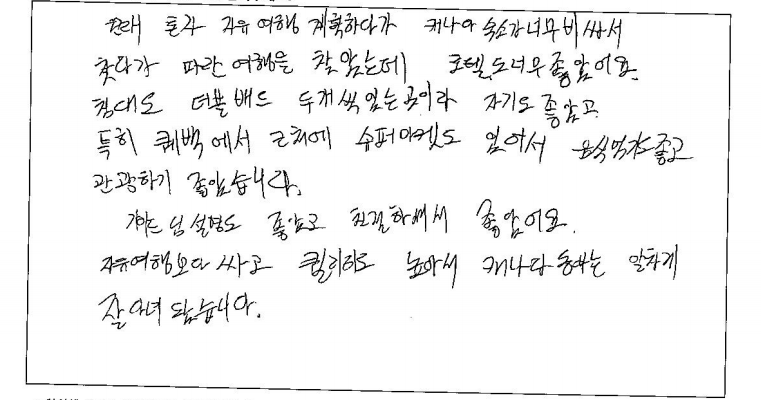 원래 혼자 자유여행 계획하다가 캐나다 숙소가 너무 비싸서
찾다가 파란여행을 찾았는데 호텔도 너무 좋았어요.
침대도 더블배드 두개씩 있는곳이라 자기도 좋았고
특히 퀘백에서 근처에 슈퍼마켓도 있어서 음식먹기도 좋고
관광하기 좋았습니다.
가이드님 설명도 좋았고 친절하셔서 좋았어요.
자유여행보다 싸고 퀄리티도 높아서 캐나다 동부는 알차게
잘 다녀왔습니다.